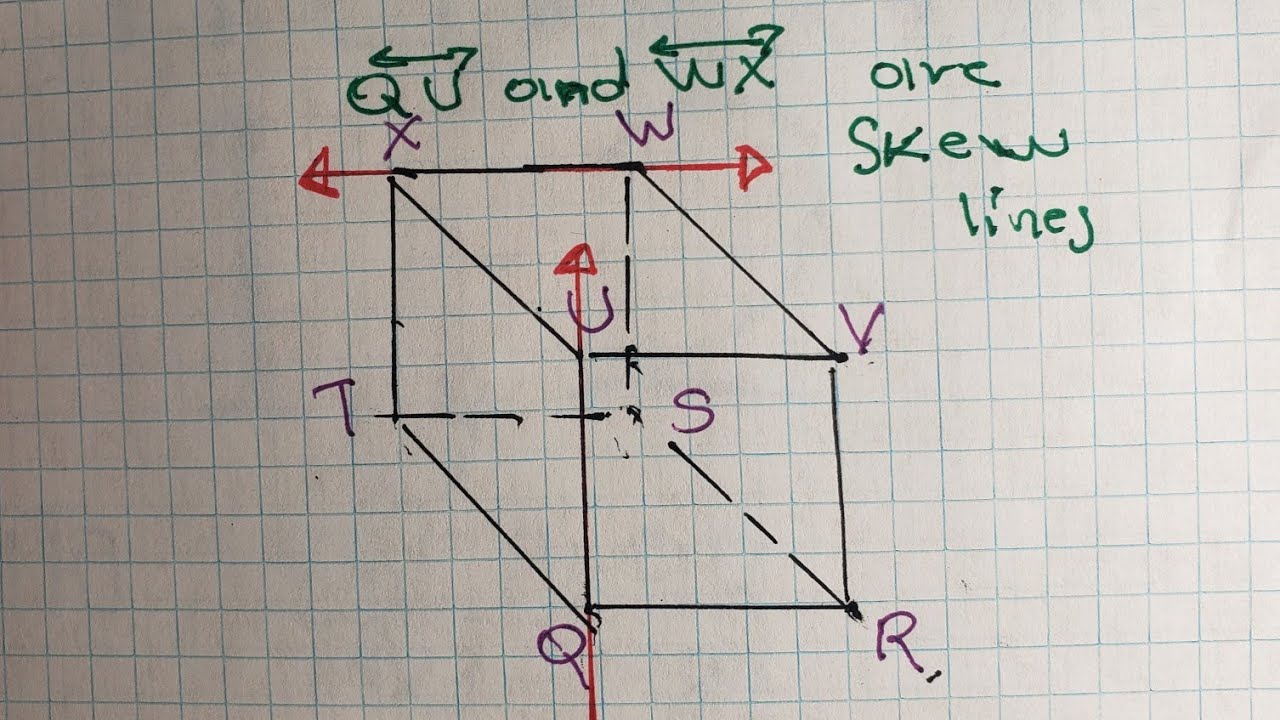 QU and WX are
skew
lines
X
W
U
V
T
S
Q
R